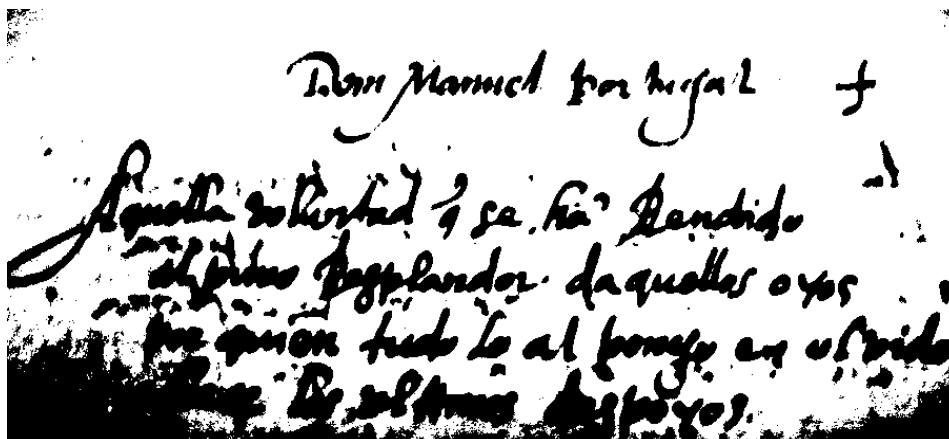 Dom Manuel Portugal
Aquella voluntad q se ha Rendido
al divino Resplandor daquellos oyos
por quien tudo lo al pongo en olvido
los despoyos.